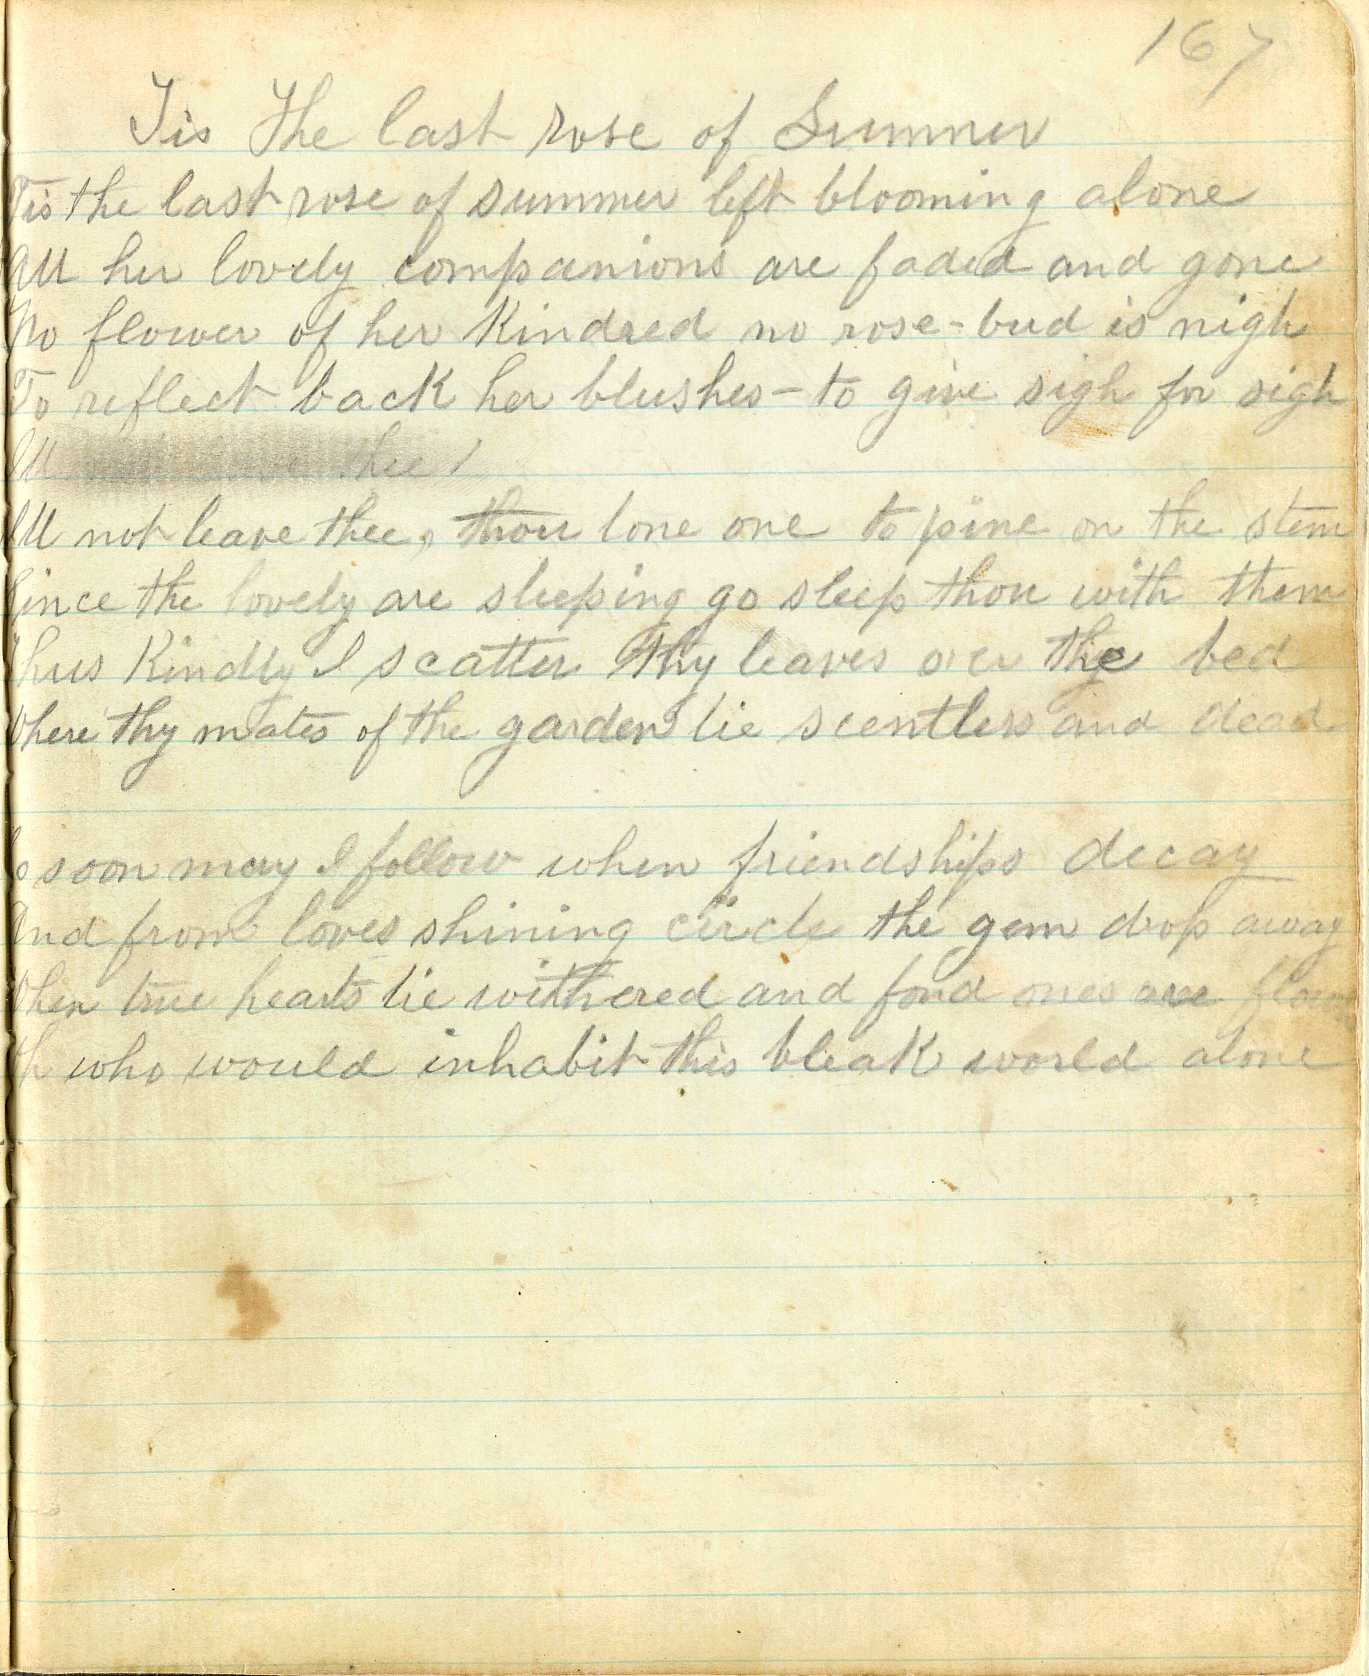 167
Tis The last rose of Summer
Tis the last rose of summer left blooming alone
All her lovely companions are faded and gone
No flower of her Kindred no rose-bud is nigh
To reflect back her blushes - to give sigh for sigh
Ill thee
Ill not leave thee, thou lone one to pine on the stem
Since the lovely are sleeping go sleep thou with them
Thus Kindly I scatter thy leaves over the bed
Where thy mates of the garden lie scentless and dead
So soon may I follow when friendships decay
And from loves shining circle the gem drop away
When true hearts lie withered and fond ones are flown
Oh who would inhabit this bleak world alone